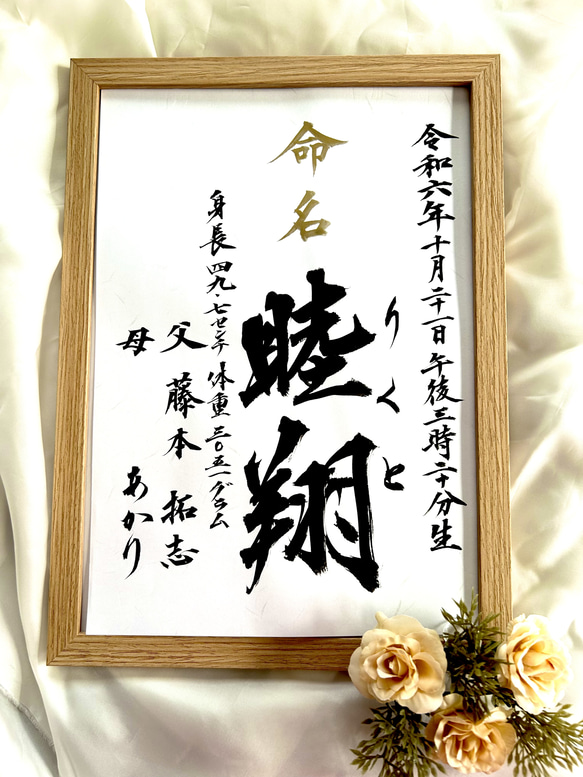 令和六年十月二十一日午後三時二十分生
りくと
命名
睦翔
身長四九・七センチ 体重三〇五一グラム
父 藤本 拓志
母 あかり